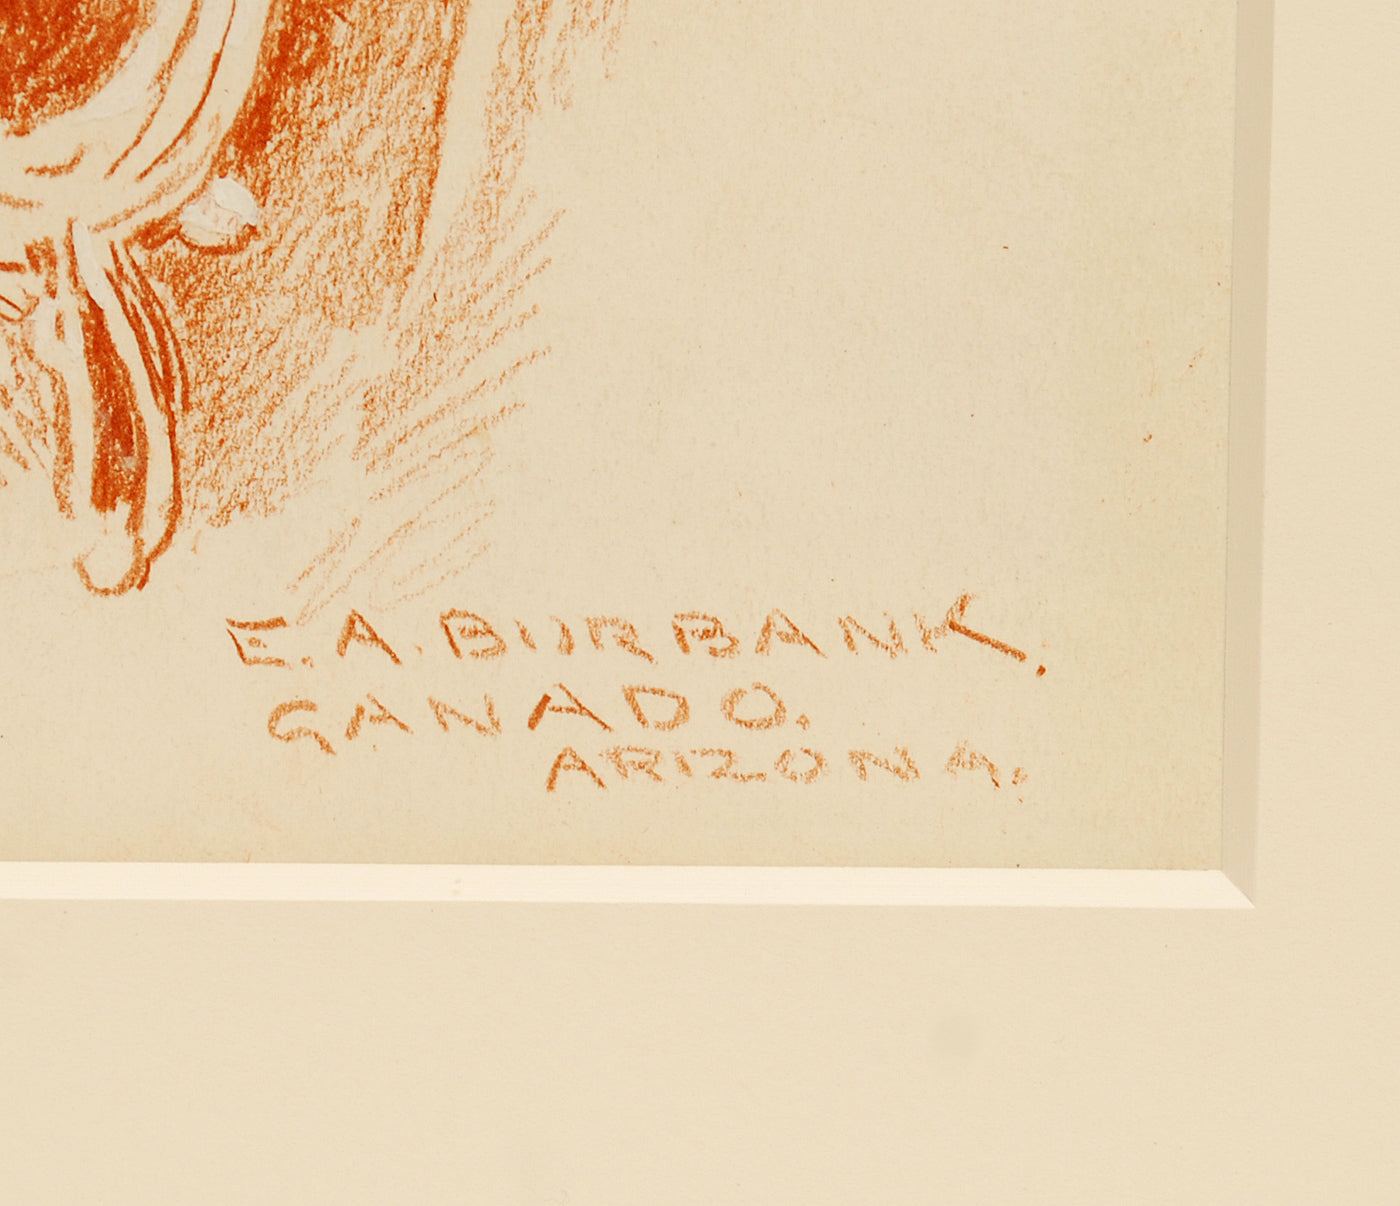 E.A. BURBANK.
GANADO.
ARIZONA.